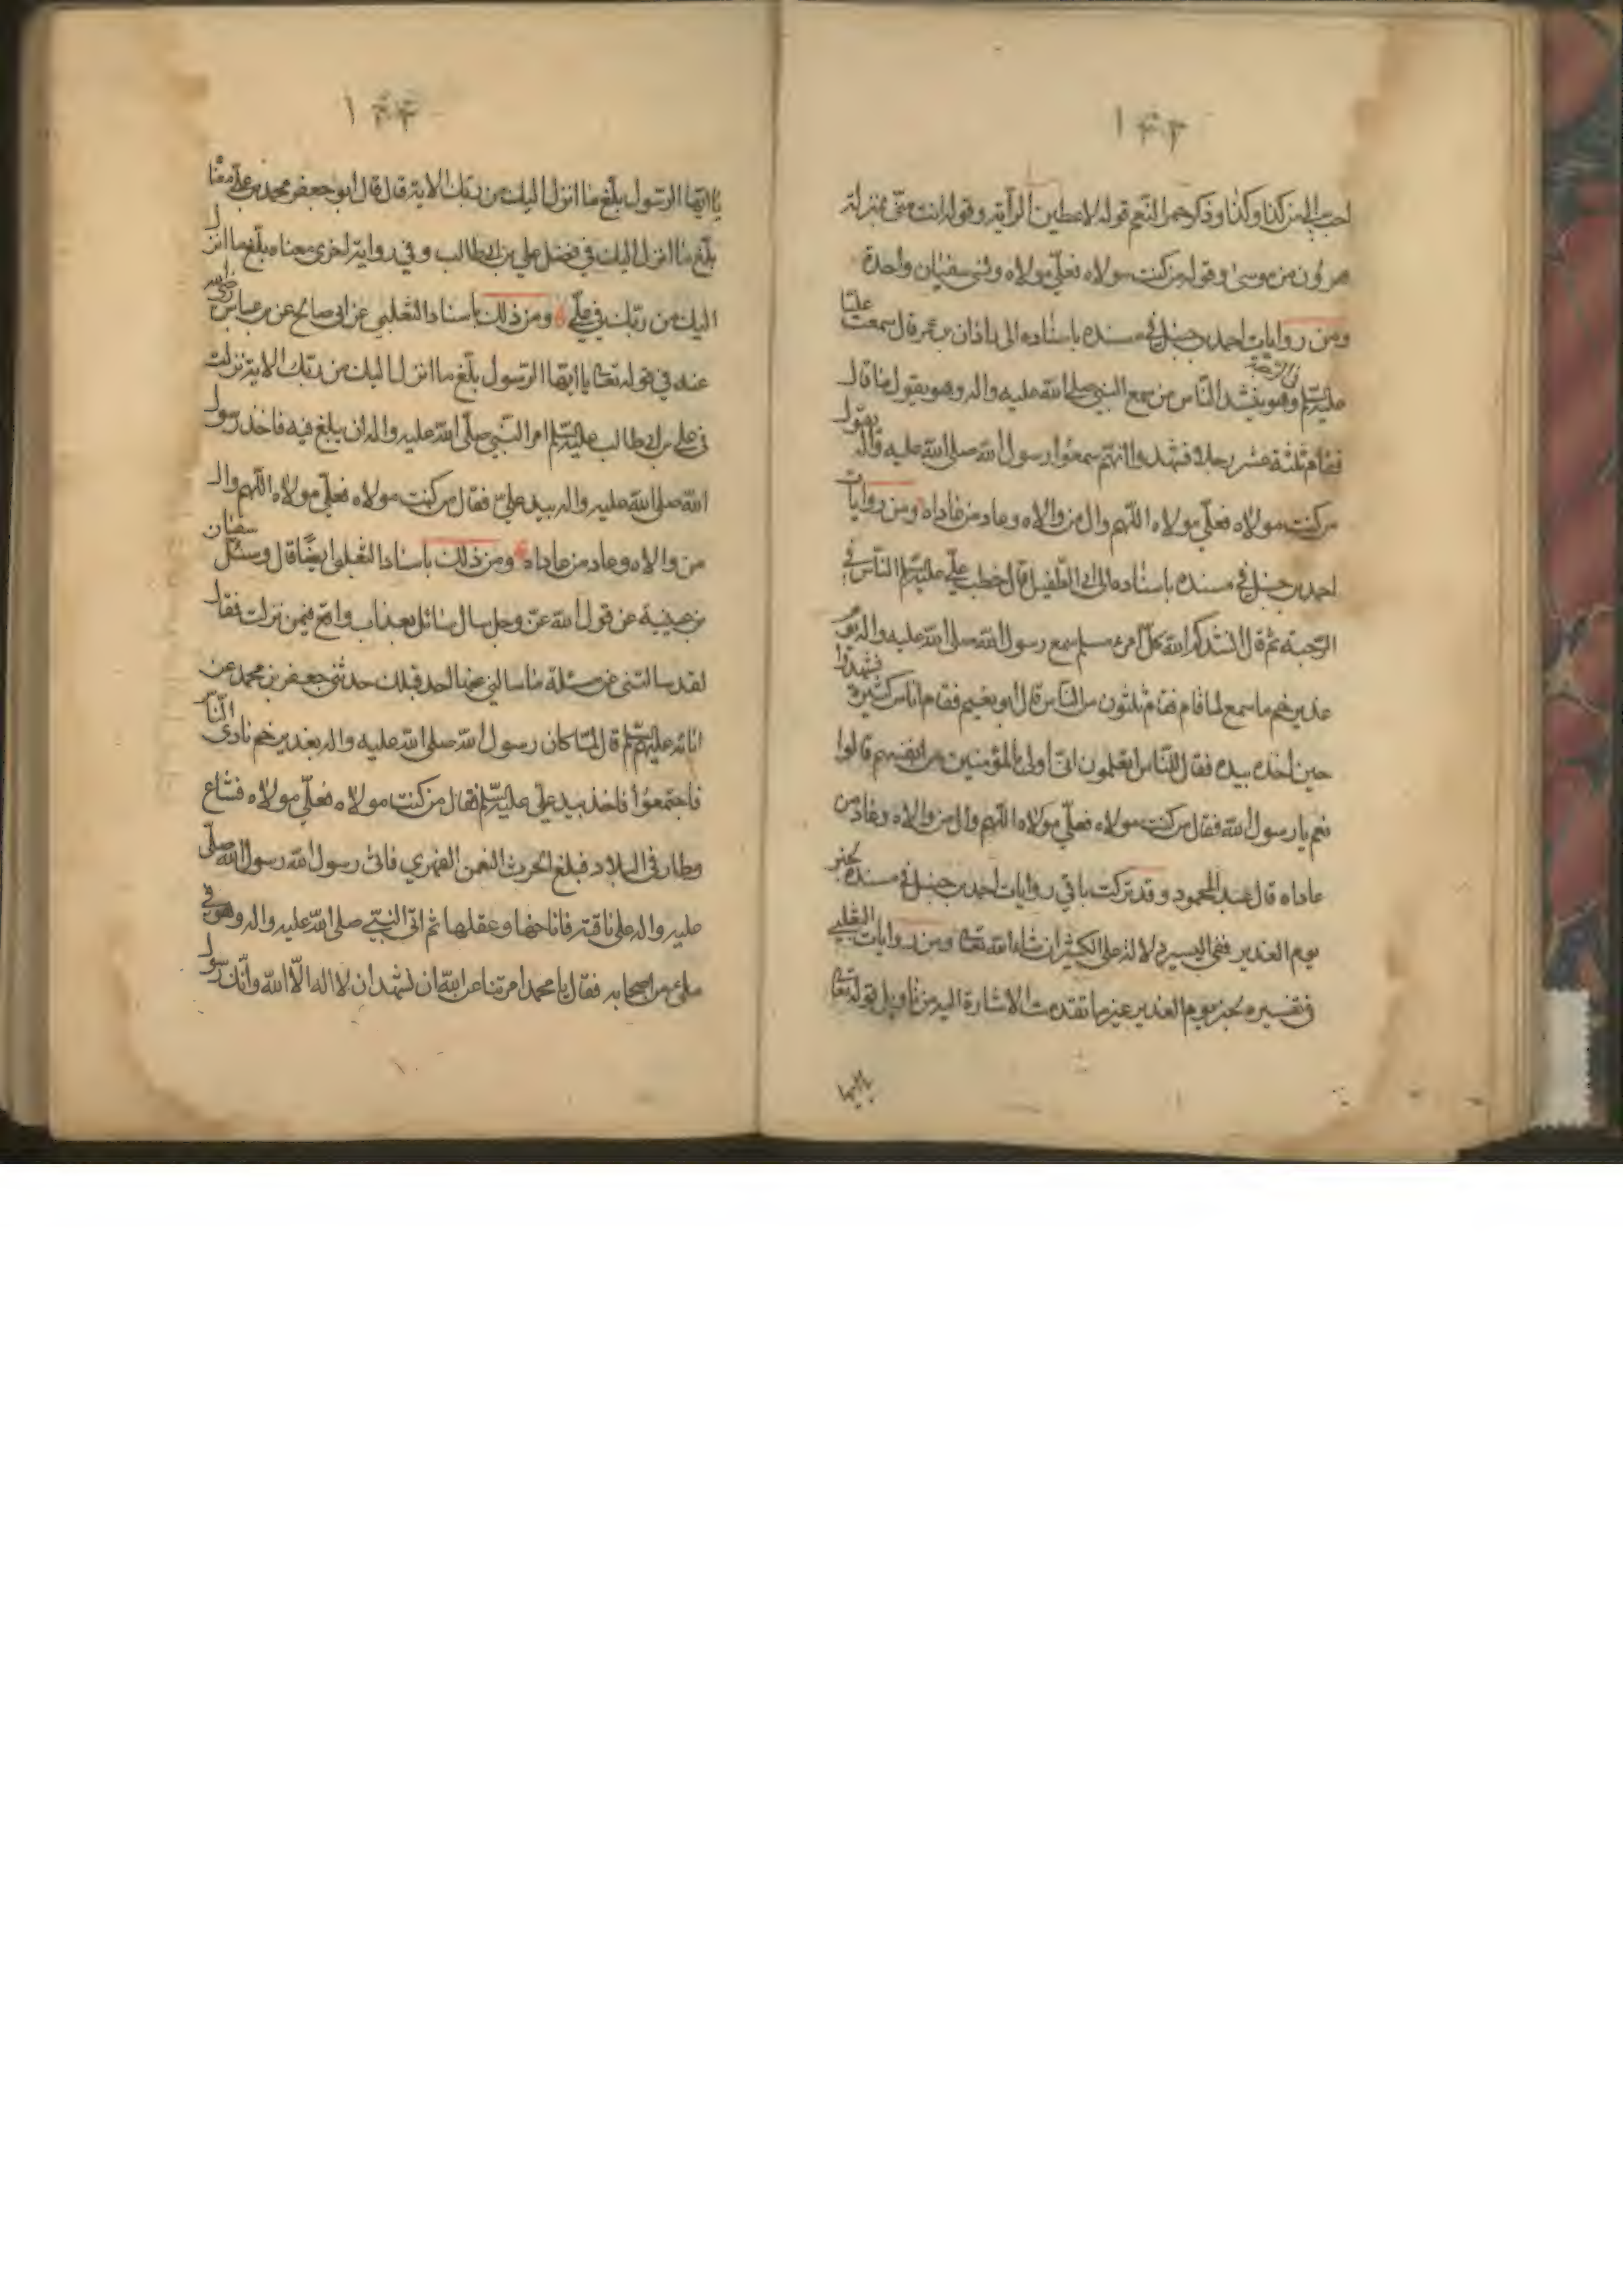 ١٤٣
احب الي من كذا وكذا وذكر حمر النعم قوله لاعطين الراية وقوله انت مني بمنزلة
هرون من موسى وقوله من كنت مولاه فعلي مولاه ونسي سفيان واحدة
ومن روايات احمد بن حنبل في مسنده باسناده الى باذان بن عمر قال سمعت عليّا
عليه السلم في الرحبة وهو ينشد الناس من سمع النبي صلى الله عليه واله وهو يقول ما قال
فقام ثلثة عشر رجلا فشهدوا انهم سمعوا رسول الله صلى الله عليه واله يقول
من كنت مولاه فعلي مولاه اللهم وال من والاه وعاد من عاداه ومن روايات
احمد بن حنبل في مسنده باسناده الى ابي الطفيل قال خطب علي عليه السلم الناس في
الرحبة ثم قال انشدكم الله كل امرء مسلم سمع رسول الله صلى الله عليه واله يوم
غدير خم ما سمع لما قام فقام ثلثون من الناس قال ابو نعيم فقام اناس كثيرة فشهدوا
حين اخذه بيده فقال للناس اتعلمون اني اولى بالمؤمنين من انفسهم قالوا
نعم يا رسول الله فقال من كنت مولاه فعلي مولاه اللهم وال من والاه وعاد من
عاداه قال عبد المحمود وقد تركت باقي روايات احمد بن حنبل في مسنده بخبر
يوم الغدير ففي اليسير دلالة على الكثير ان شاء الله تعا ومن روايات الثعلبي
في تفسيره بخبر يوم الغدير غير ما تقدمت الاشارة اليه من تاويل قوله تعا
يا ايها
١٤٤
يا ايها الرسول بلّغ ما انزل اليك من ربك الاية قال قال ابو جعفر محمد بن علي معنا
بلّغ ما انزل اليك في فضل علي بن ابي طالب وفي رواية اخرى معناه بلّغ ما انزل
اليك من ربك في علي ومن ذلك باسناد الثعلبي عن ابي صالح عن بن عباس رضي الله
عنه في قوله تعا يا ايها الرسول بلّغ ما انزل اليك من ربك الاية نزلت
في علي بن ابي طالب عليه السلم امر النبي صلى الله عليه واله ان يبلغ فيه فاخذ رسول
الله صلى الله عليه واله بيد علي فقال من كنت مولاه فعلي مولاه اللهم وال
من والاه وعاد من عاداه ومن ذلك باسناد الثعلبي ايضا قال وسئل سفيان
بن عيينة عن قول الله عز وجل سال سائل بعذاب واقع فيمن نزلت فقال
لقد سالتني عن مسئلة ما سالني عنها احد قبلك حدثني جعفر بن محمد عن
ابائه عليهم السلم قال لما كان رسول الله صلى الله عليه واله بغدير خم نادى الناس
فاجتمعوا فاخذ بيد علي عليه السلم فقال من كنت مولاه فعلي مولاه فشاع
وطار في البلاد فبلغ الحرث النعمن الفهري فاتى رسول الله رسول الله صلى
عليه واله على ناقته فاناخها وعقلها ثم اتى النبي صلى الله عليه واله وهو في
ملئ من اصحابه فقال يا محمد امرتنا عن الله ان نشهد ان لا اله الا الله وانك رسول